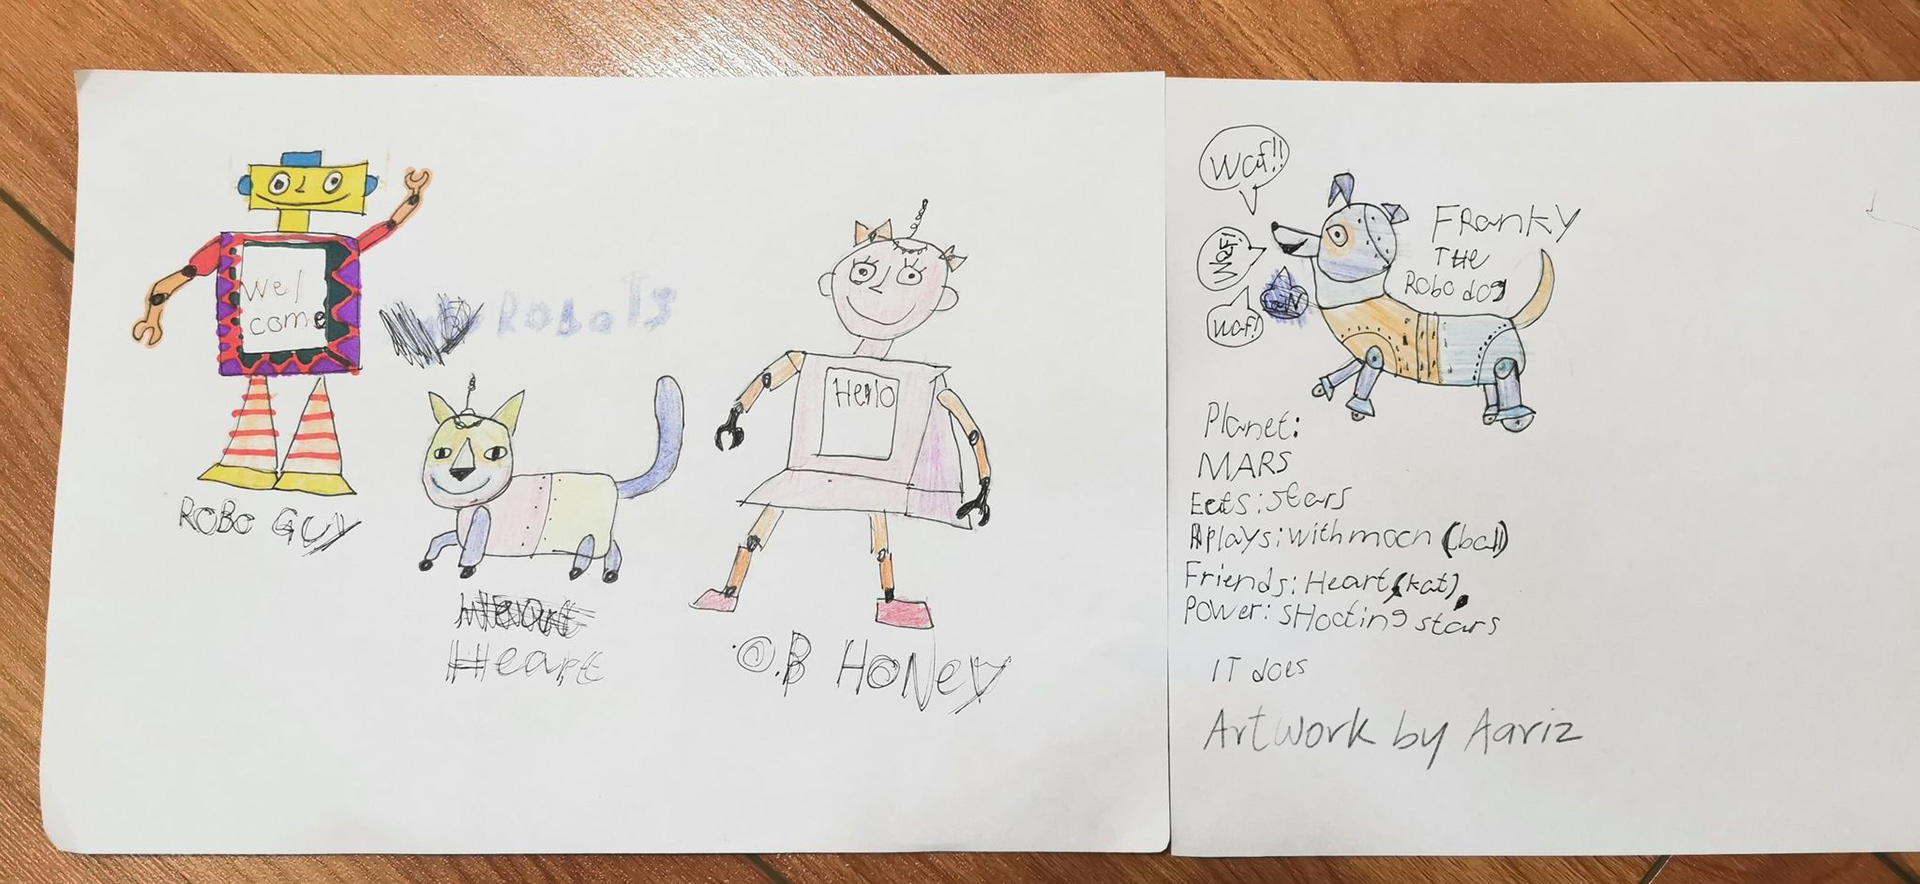 Wel
come
ROBO GUY
RoBoTs
Heart
Hello
O.B HoNey
Waf!!
Waf!
Waf!
FRanKY
THe
Robo dog
Planet:
MARS
Eats: stars
plays: with moon (ball)
Friends: Heart (kat),
Power: sHooting stars
IT does
Artwork by Aariz